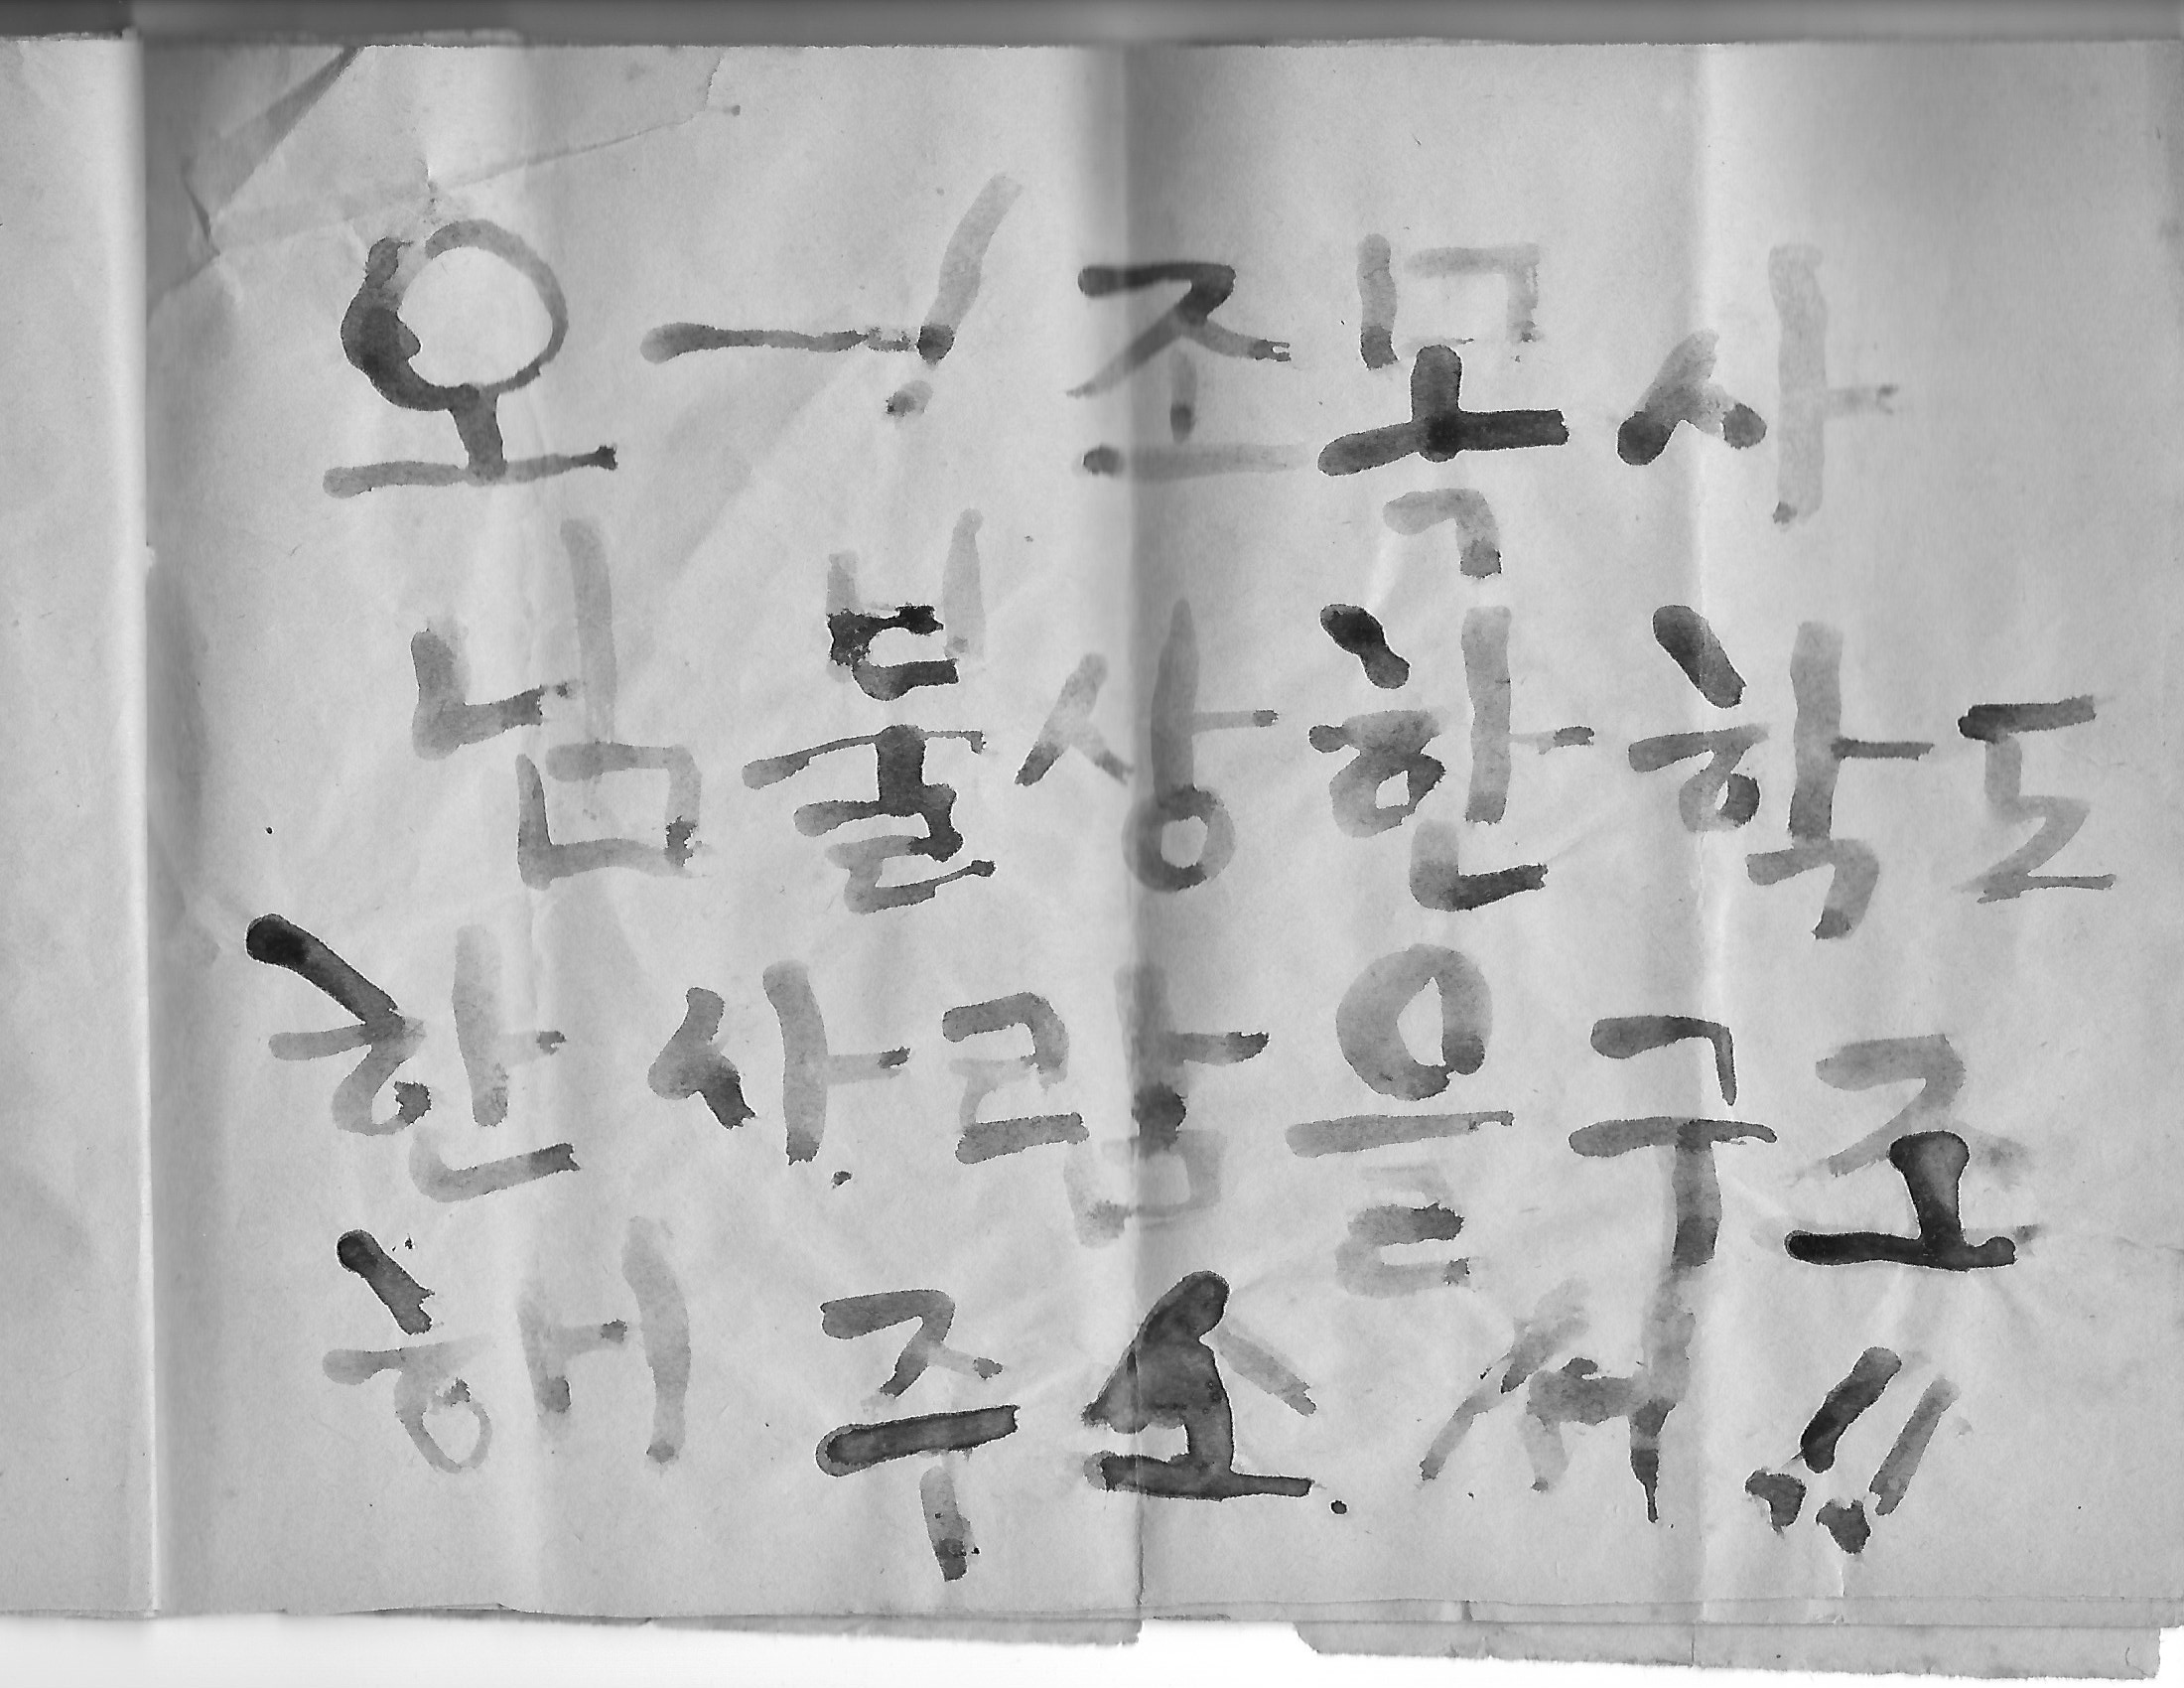 오―! 조목사
님 불상한 학도
한 사람을 구조
해 주소서!!